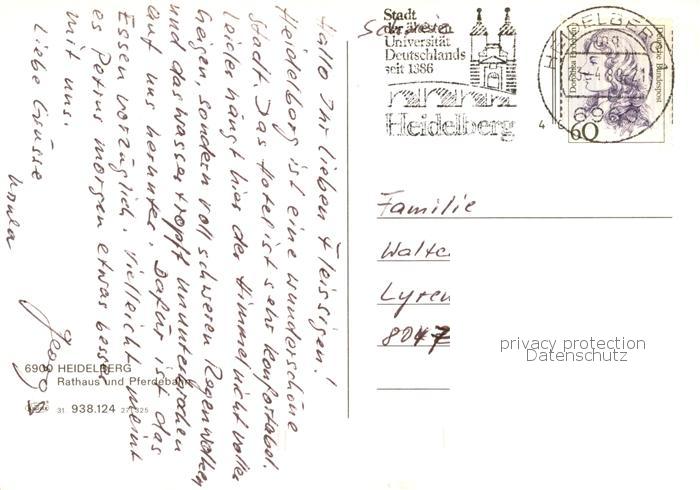 Hallo Ihr lieben Fleissigen!
Heidelberg ist eine wunderschöne
Stadt. Das Hotel ist sehr komfortabel.
Leider hängt hier der Himmel nicht voller
Geigen, sondern voll schweren Regenwolken
und das Wasser tropft ununterbrochen
auf uns herunter. Dafür ist das
Essen vorzüglich. Vielleicht meint
es Petrus morgen etwas besser
mit uns.
Liebe Grüsse
Ursula
6900 HEIDELBERG
Rathaus und Pferdebahn
31 938.124 271325
Stadt
der ältesten
Universität
Deutschlands
seit 1386
Heidelberg
HEIDELBERG
6900
Deutsche Bundespost
60
Familie
Walte
Lyren
8047
privacy protection
Datenschutz